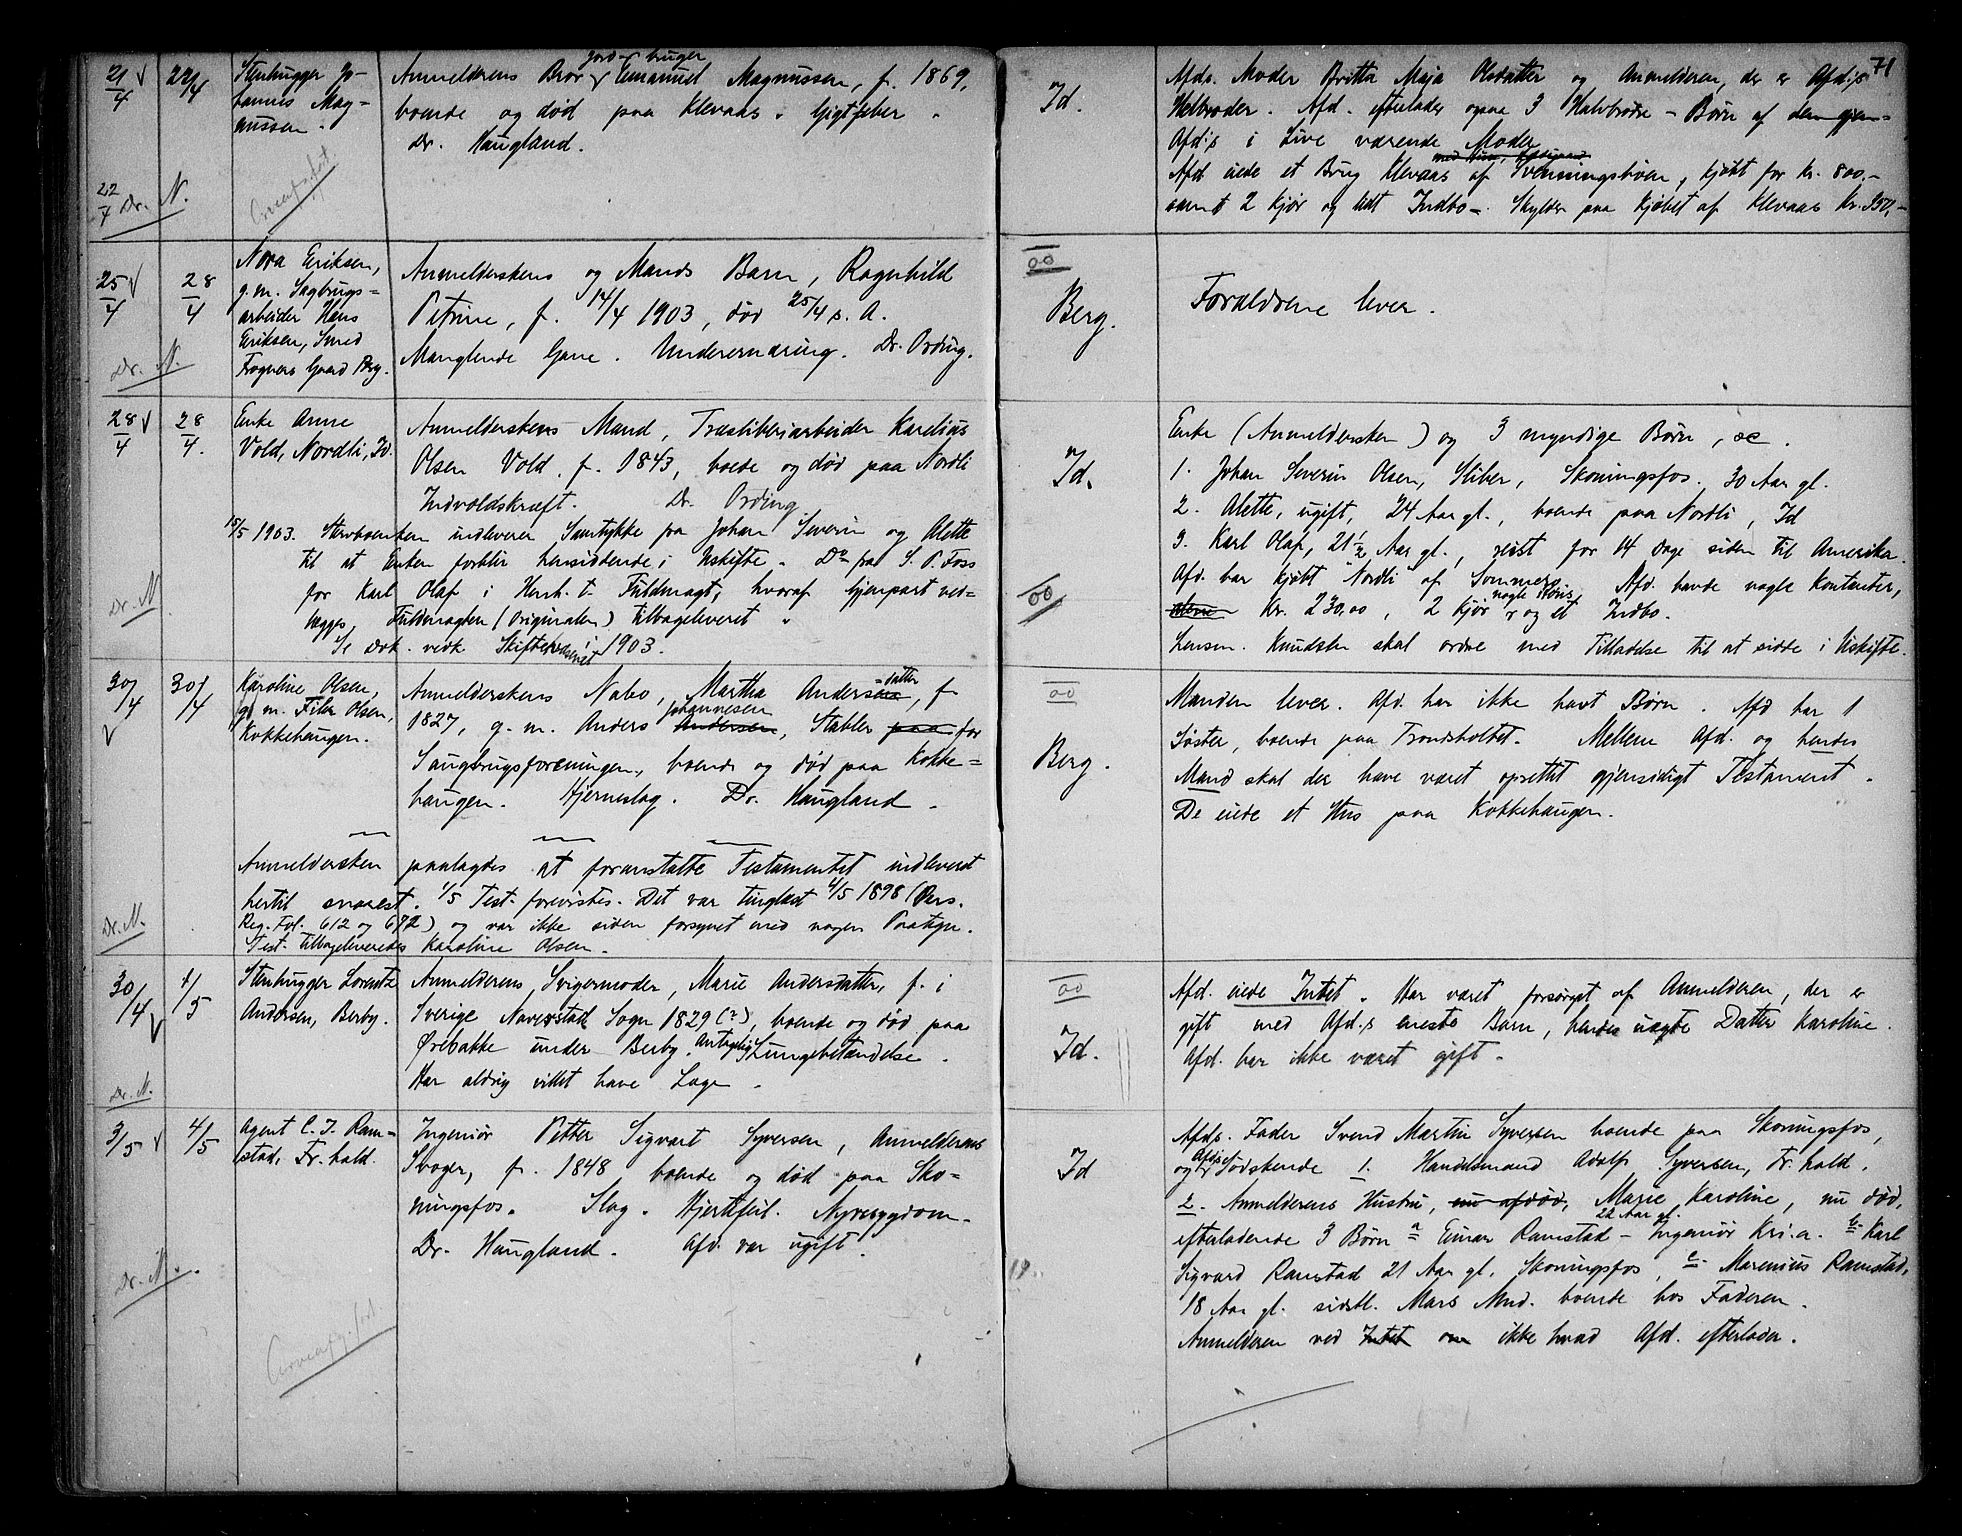 71
21/4 22/4 Stenhugger Jo-
hannes Mag-
nussen.
Anmelderens Bror Jordbruger Emanuel Magnussen, f. 1869,
boende og død paa Klevaas. Gigtfeber.
Dr. Haugland.
22/4 Dr. N.
Id.
Afds. Moder Britta Maja Olsdatter og Anmelderen, der er Afd;s
Helbroder. Afd. efterlader ogsaa 3 Halvbrødre - Børn af den gjen-
Afd;s i Live værende Moder
Afd eiede et Brug Klevaas af Svenningsbøen, kjøbt for kr. 800,-
samt 2 Kjør og lidt Indbo -. Skylder paa Kjøbet af Klevaas Kr. 350,-
25/4 28/4 Nora Eriksen,
g. m. Sagbrugs=
arbeider Hans
Eriksen, Smed
Fragners Gaard Berg.
Anmelderskens og Mands Barn, Ragnhild
Petrine, f. 14/4 1903, død 25/4 s. A.
Manglende Gane. Underernæring. Dr. Ording.
Dr. N.
Berg.
Forældrene lever.
28/4 28/4. Enke Anne
Vold, Nordli, Id.
Anmelderskens Mand, Træsliberiarbeider Karelius
Olsen Vold, f. 1843, boede og død paa Nordli
Indvoldskræft. Dr. Ording
15/5 1903. Stervboenken indleverer Samtykke fra Johan Severin og Alette
til at Enken forblir hensiddende i Uskifte. Do fra S. P. Foss
for Karl Olaf i Henh. t. Fuldmagt, hvoraf Gjenpart ved=
lægges, Fuldmagten (Originalen) tilbageleveret
Se Dok. vedk Skiftevæsenet i 1903.
Dr. N.
Id.
Enke (Anmeldersken) og 3 myndige Børn, sc.
1. Johan Severin Olsen, Sliber, Skoningsfos, 30 Aar gl.
2. Alette, ugift, 24 Aar gl., boende paa Nordli, Id
3. Karl Olaf, 21 1/2 Aar gl., reist for 14 Dage siden til Amerika.
Afd. har kjøbt "Nordli" af Sommero. Afd. havde nogle Kontanter,
Kr. 230,00, 2 Kjør, nogle Høns og et Indbo.
Lensm. Knudsen skal ordne med Tilladelse til at sidde i Uskifte.
30/4 30/4 Karoline Olsen,
g. m. Filer Olsen,
Kokkehaugen.
Anmelderskens Nabo, Martha Andersdatter, f.
1827, g. m. Anders Johannesen Andersen, Stabler paa for
Saugbrugsforeningen, boende og død paa Kokke=
haugen. Hjerneslag. Dr. Haugland.
Anmeldersken paalagdes at foranstalte Testamentet indleveret
hertil snarest. 1/5 Test. forevistes. Det var tinglæst 4/5 1898 (Pers.
Reg. Fol. 612 og 672) og var ikke siden forsynet med nogen Paategn.
Test. tilbageleveredes Karoline Olsen.
Dr. N.
Berg.
Manden lever. Afd. har ikke havt Børn. Afd har 1
Søster, boende paa Trondsholtet. Mellem Afd. og hendes
Mand skal der have været oprettet gjensidigt Testament.
De eiede et Hus paa Kokkehaugen.
30/4 1/5 Stenhugger Lorentz
Andersen, Berby.
Anmelderens Svigermoder, Marie Andersdatter, f. i
Sverige Naverstad Sogn 1829 (?), boende og død paa
Ørebakke under Berby. Antagelig Lungebetændelse.
Har aldrig villet have Læge.
Dr. N.
Id.
Afd. eiede Intet. Har været forsørget af Anmelderen, der er
gift med Afd.s eneste Barn, hendes uægte Datter Karoline.
Afd. har ikke været gift.
3/5 4/5 Agent C. J. Ram=
stad, Fr.hald.
Ingeniør Petter Sigvart Syversen, Anmelderens
Svoger, f. 1848 boende og død paa Sko=
ningsfos. Slag. Hjertefeil. Nyresygdom.
Dr. Haugland. Afd. var ugift.
Dr. N.
Id
Afds. Fader Svend Martin Syversen boende paa Skoningsfos,
og Afds Sødskende 1. Handelsmand Adolf Syversen, Fr.hald.
2. Anmelderens Hustru, nu afdød, Marie Karoline, nu død,
efterladende 3 Børn a Einar Ramstad 22 Aar gl. - Ingeniør Kr.i.a. b. Karl
Sigvard Ramstad 21 Aar gl. Skoningsfos, c. Marenius Ramstad,
18 Aar gl. sidstl. Mars Mnd. boende hos Faderen.
Anmelderen ved Intet om ikke hvad Afd. efterlader.